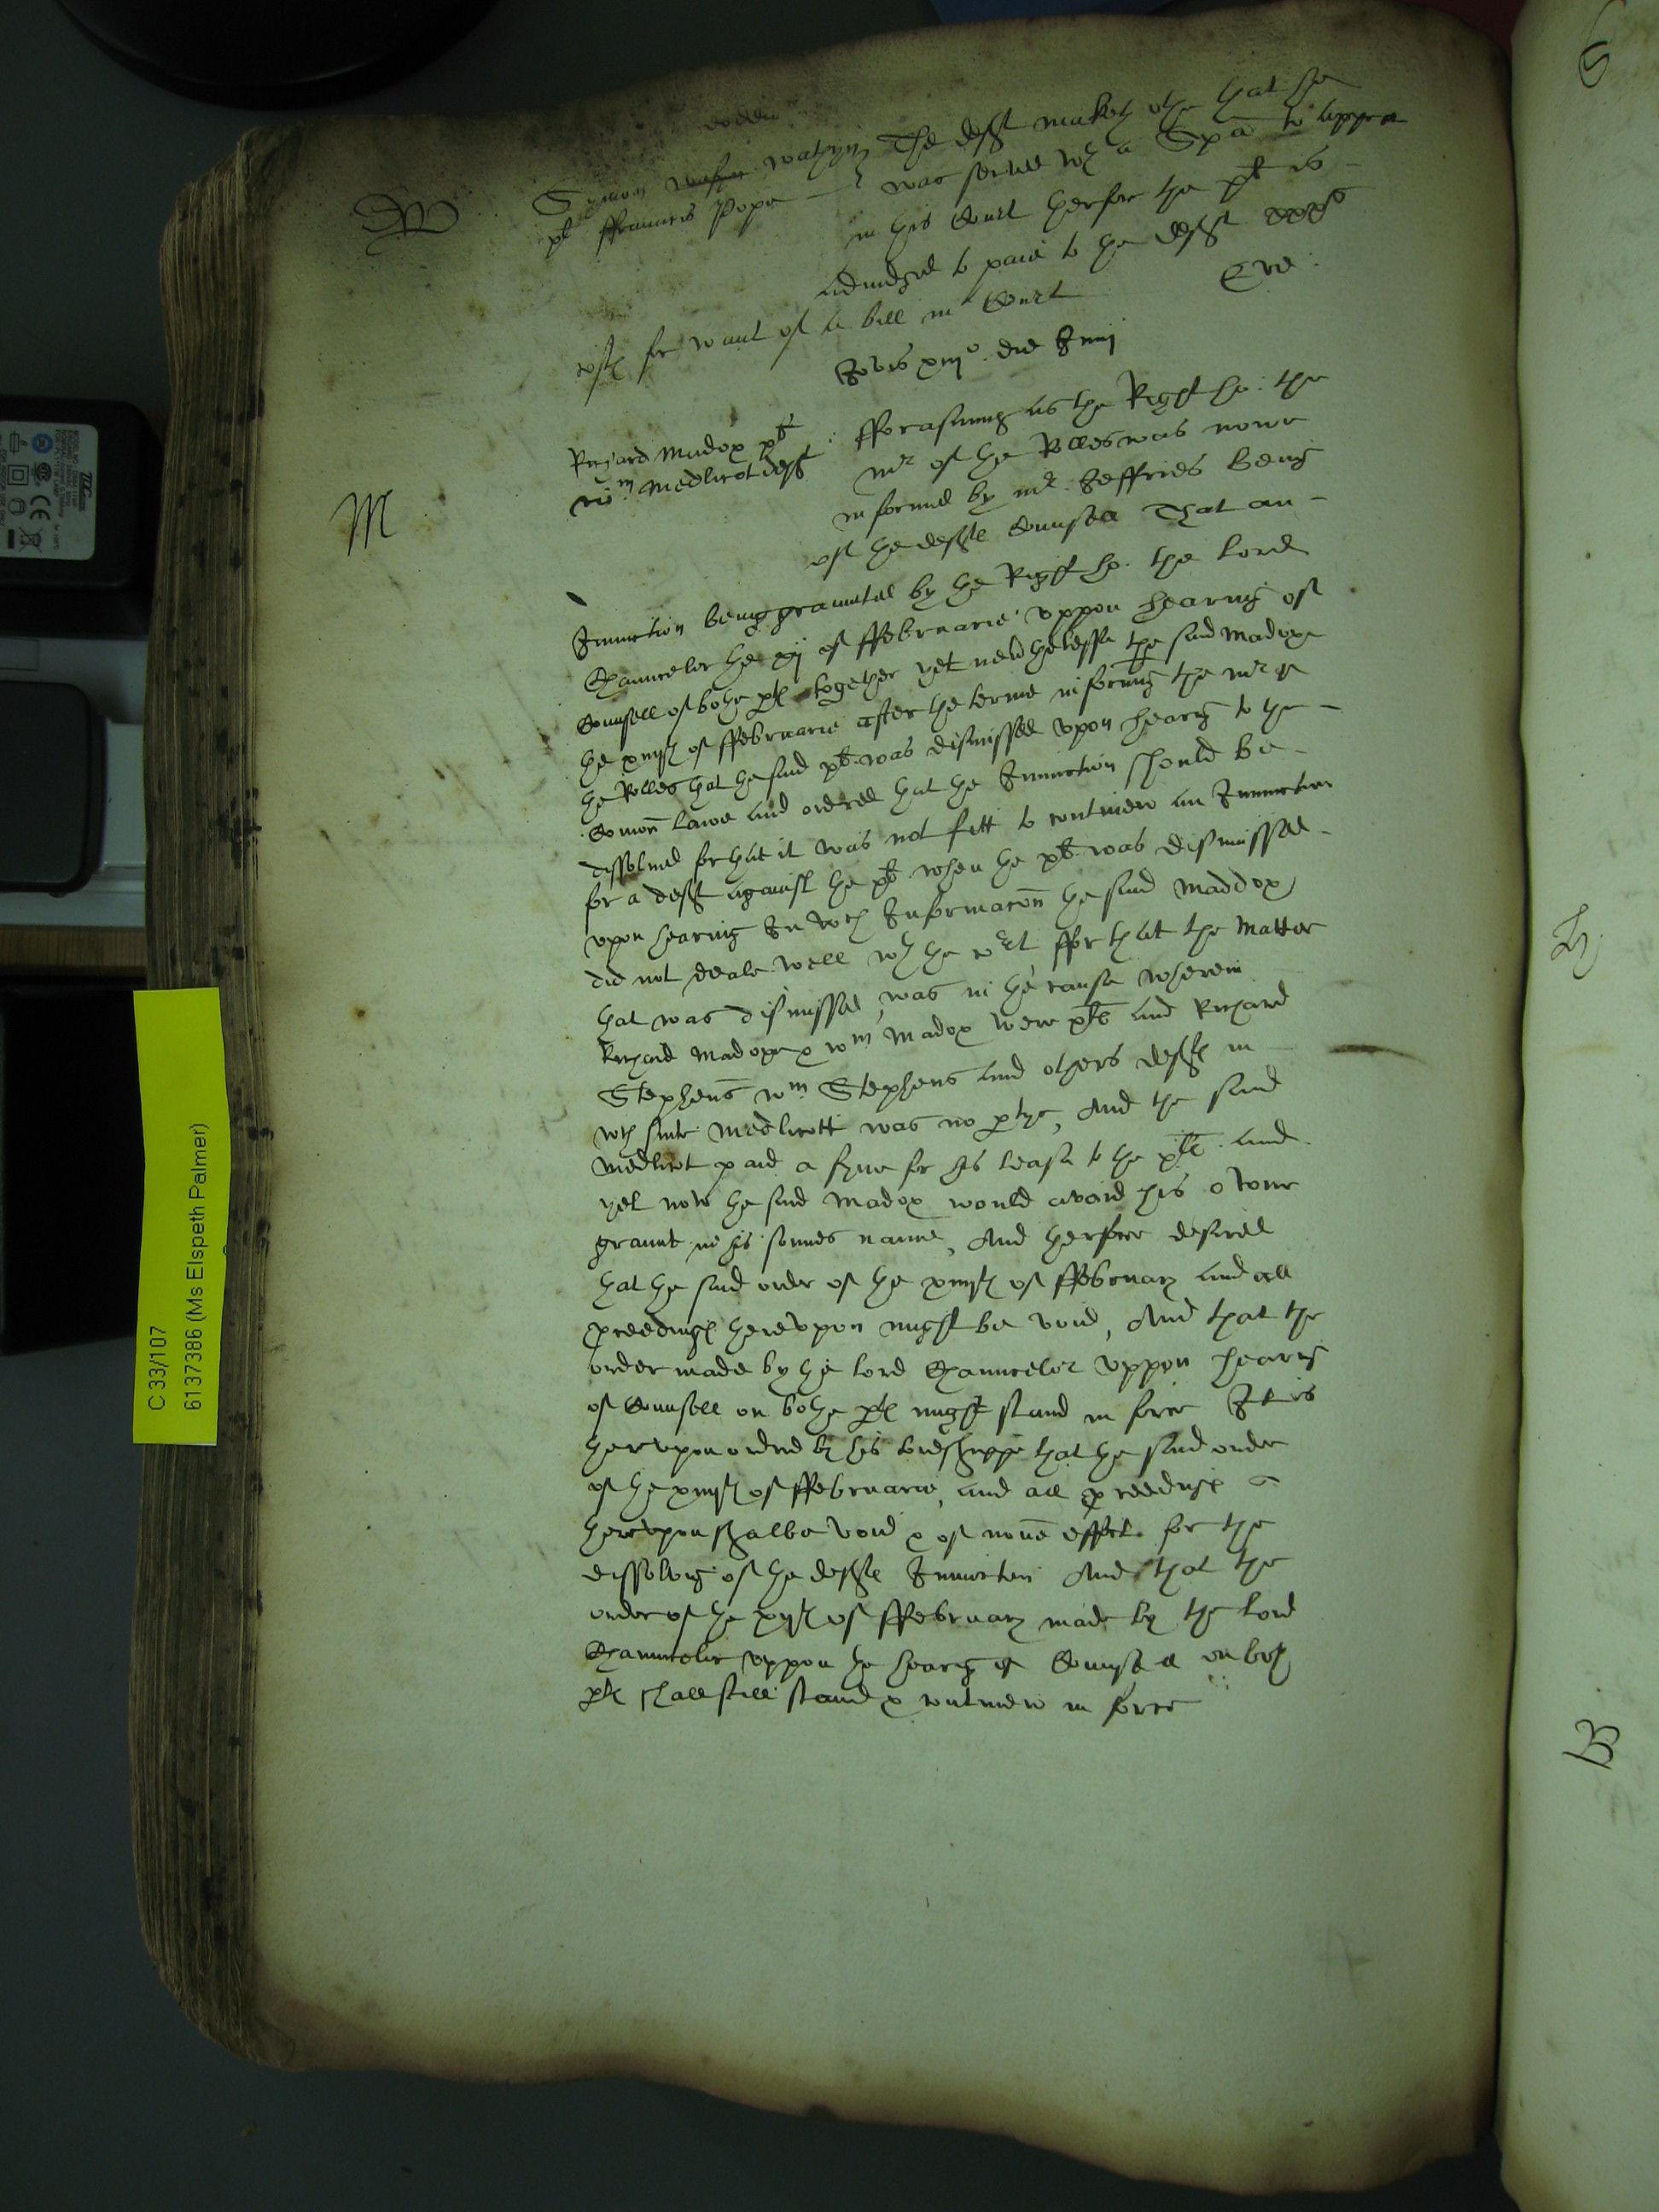 W
Symon wathyn The deft maketh othe that he
plt ffrauncis Pope was served wth a Spa to appeare
in this Court therfore the plt is
adiudged to paie to the deft xxx s
costes for want of a bill in Court
Jovis xiijo die Junij
M
Richard Madox plt
Wm Medlicot deft
fforasmuch as the Right ho: the
mr of the Rolles was nowe
informed by mr Jeffries being
of the deftes Counsell That an
Iniunction being graunted by the Right ho. the Lord
Chauncelor the xij of ffebruarie uppon hearing of
Counsell of bothe ptes together yet neverthelesse the said Madoxe
the xviijth of ffebruarie after the terme informing the mr of
the Rolles that the said plt was dismissed upon hearing to the
Comon Lawe and ordered that the Iniunction should be
dissolued for that it was not fitt to contineu an Iniunction
for a deft against the plt when the plt was dismissed
upon hearing In wch Informacon the said Maddox
did not deale well wth the court ffor that the matter
that was dismissed was in the cause wherein
Richard Madoxe & Wm Madox were pltes and Richard
Stephens Wm Stephens and others deftes in
wch sute Medlicott was no ptye, And the said
Medlicot paid a fyne for his lease to the plt and
yet now the said Madox would avoid his owne
graunt in his sonnes name, And therfore desired
that the said order of the xviijth of ffebruary and all
proceedinges therevpon might be void, And that the
order made by the Lord Chauncelor uppon hearing
of Counsell on bothe ptes might stand in force It is
hervpon ordred by his Lordshippe that the said order
of the xviijth of ffebruarie, and all proceedinges
therevpon shalbe void & of none effect for the
dissolving of the deftes Iniunction And that the
order of the xijth of ffebruary made by the Lord
Chauncelor uppon the hearing of Counsell on both
ptes shall still stand & contineu in force
C 33/107
6137386 (Ms Elspeth Palmer)
S
B